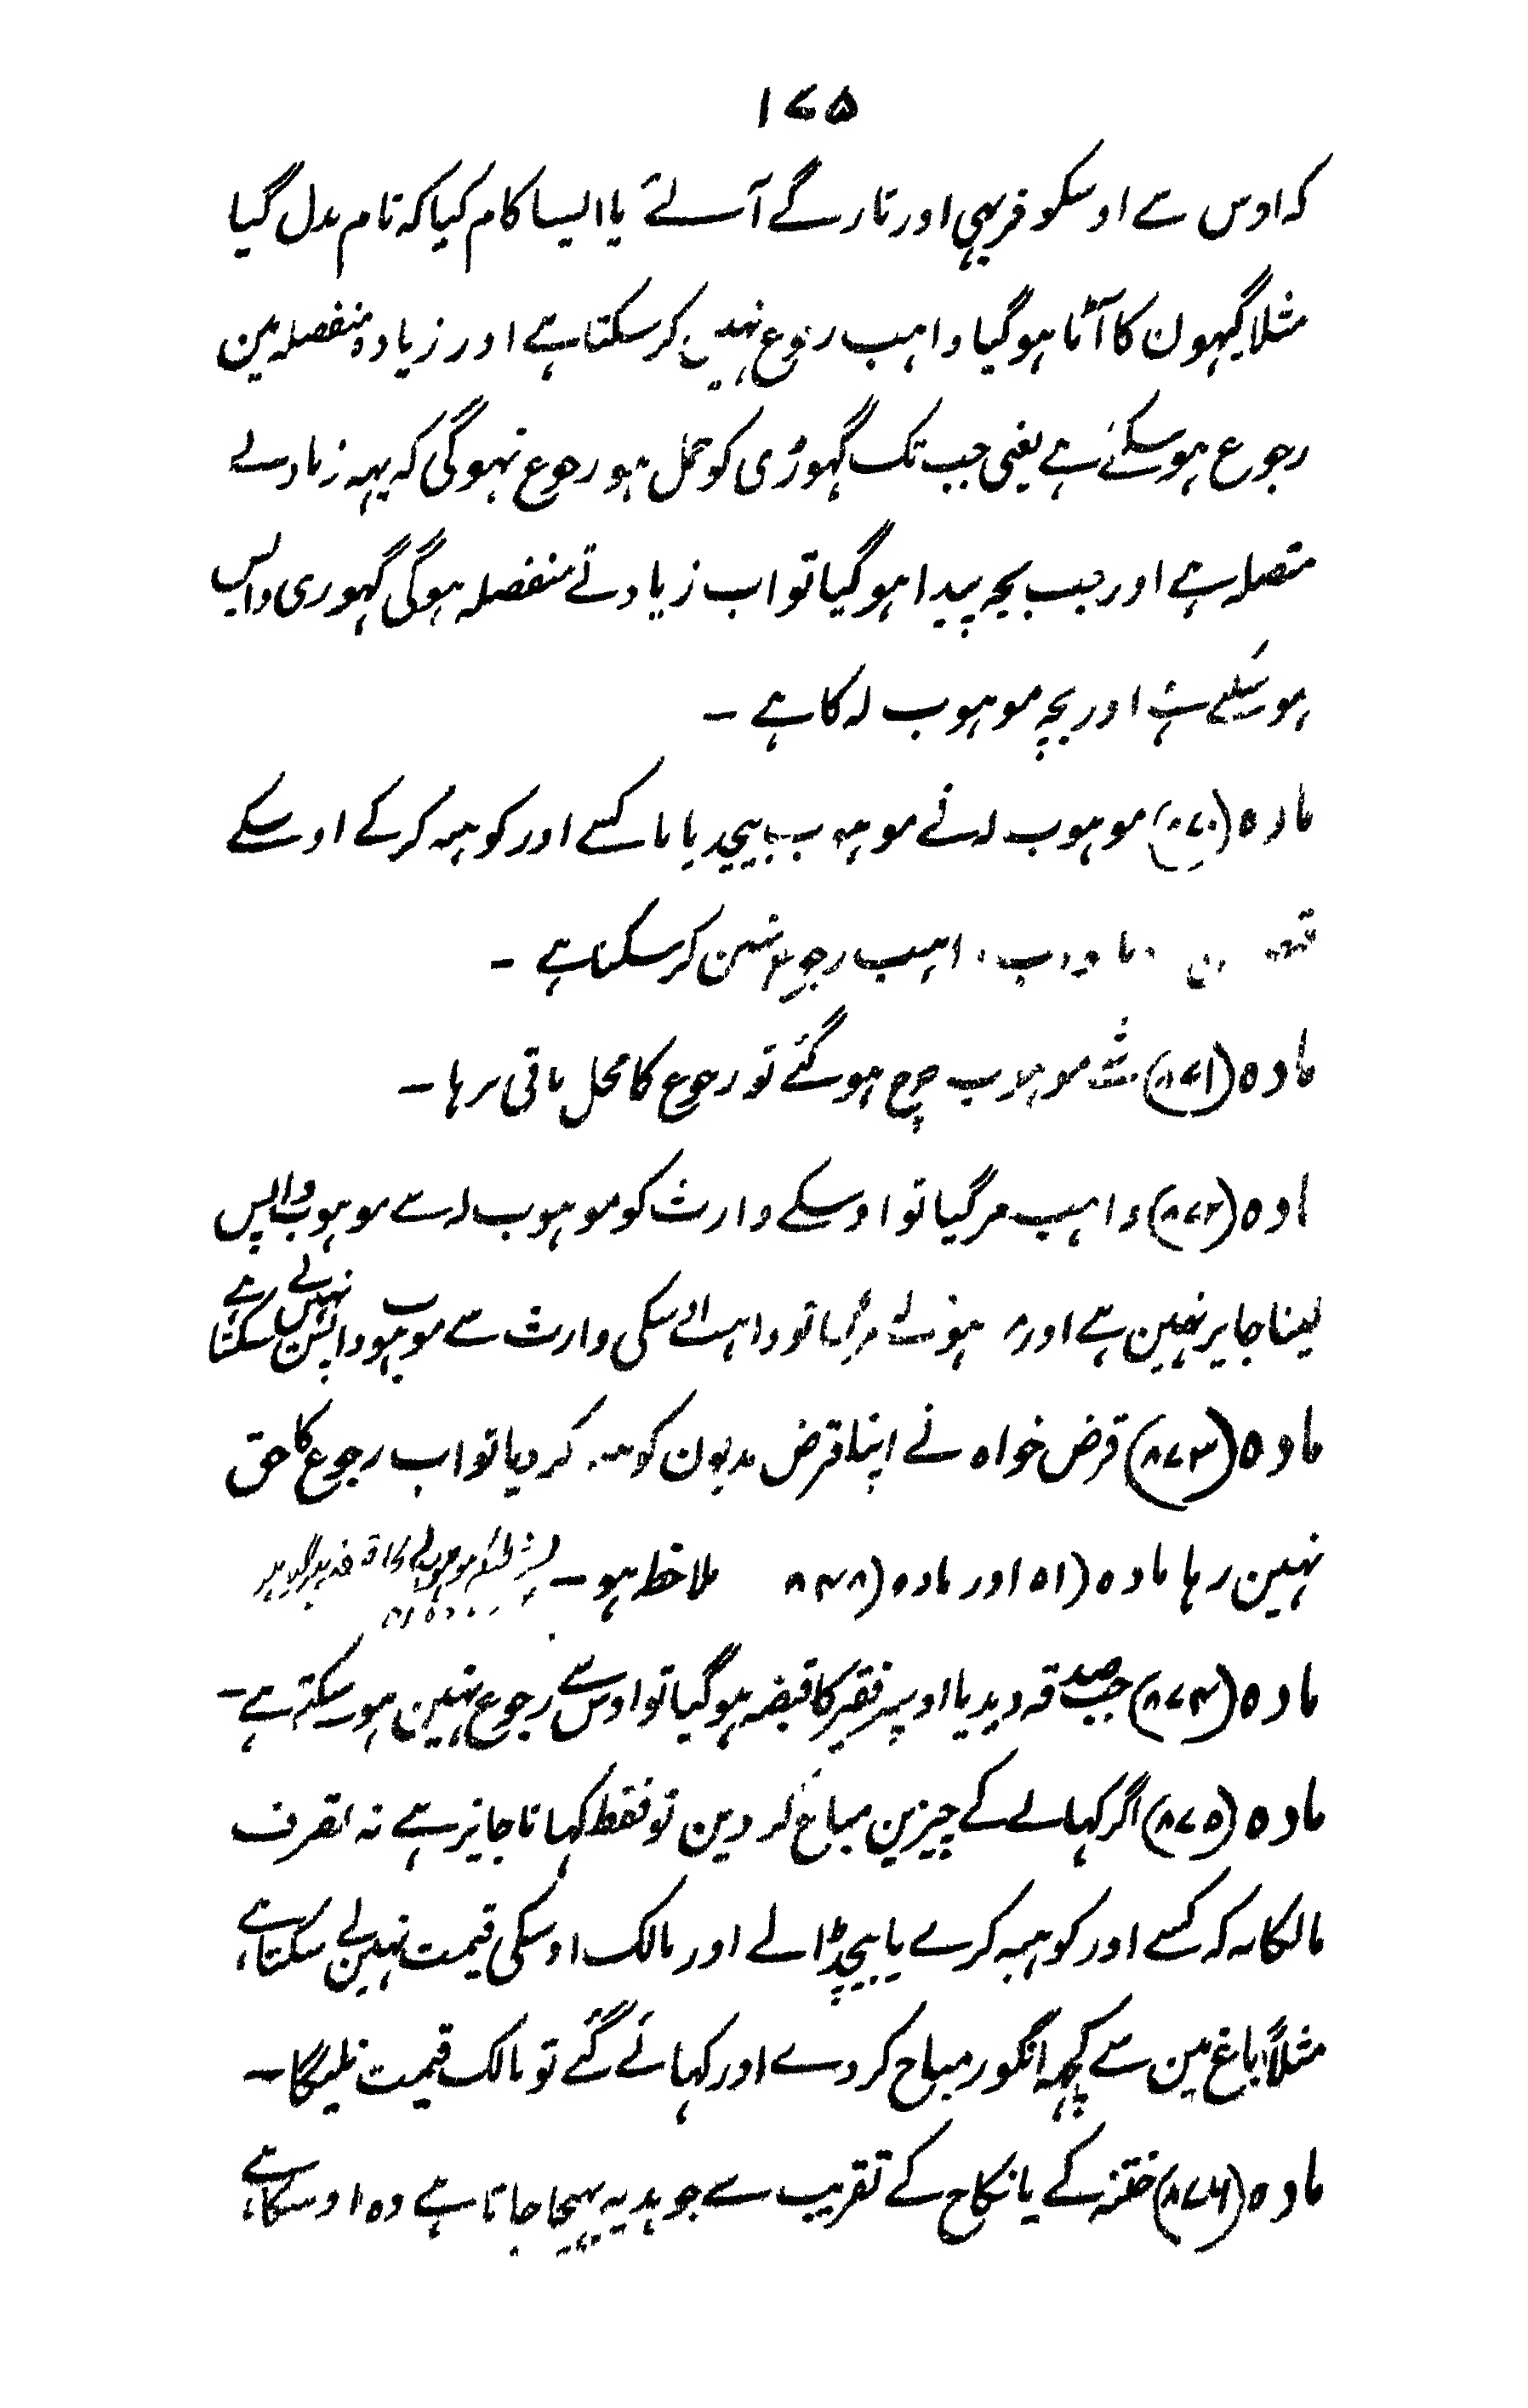 ۱۷۵
کہ اوس سے اوسکو فربہی اور تازگے آئے یا ایسا کام کیا کہ نام بدل گیا
مثلا گیہون کا آٹا ہو گیا واہب رجوع نہین کر سکتا ہے اور زیادہ منفصلہ مین
رجوع ہو سکتے ہے یعنی جب تک گہوڑی کو حمل ہو رجوع نہوگی کہ یہہ زیادتے
متصلہ ہے اور جب بچہ پیدا ہو گیا تو اب زیادتے منفصلہ ہوگی گہوری واپس
ہو سکتے ہے اور بچہ موہوب لہ کا ہے ۔
مادہ (۸۷۰) موہوب لہ نے موہوب بیچدیا یا کسے اور کو ہبہ کر کے اوسکے
واہب رجوع نہین کر سکتا ہے ۔
مادہ (۸۷۱) شے موہوب خرچ ہو گئے تو رجوع کا محل باقی نرہا ۔
مادہ (۸۷۲) واہب مر گیا تو اوسکے وارث کو موہوب لہ سے موہوب واپس
لینا جایز نہین ہے اور مر گیا تو واہب اسکی وارث سے موہوب واپس نہین لے سکتا ہے
مادہ (۸۷۳) قرض خواہ نے اپنا قرض مدیون کو ہبہ کر دیا تو اب رجوع کا حق
نہین رہا مادہ (۵۱ اور مادہ (۸۴۸ ملاخط ہو ۔
مادہ (۸۷۴) جب صدقہ دیدیا اوسپر فقیر کا قبضہ ہو گیا تو اوس سے رجوع نہین ہو سکتے ہے ۔
مادہ (۸۷۵) اگر کہانے کے چیزین مباح کر دین تو فقط کہانا جایز ہے نہ تصرف
مالکانہ کہ کسے اور کو ہبہ کرے یا بیچڈالے اور مالک اوسکی قیمت نہین لے سکتا ہے،
مثلاً باغ مین سے کچہہ انگور مباح کر دے اور کہائے گئے تو مالک قیمت نلیگا ۔
مادہ (۸۷۶) ختنہ کے یا نکاح کے تقریب سے جو ہدیہ بہیجا جاتا ہے وہ اوسکا ہے،